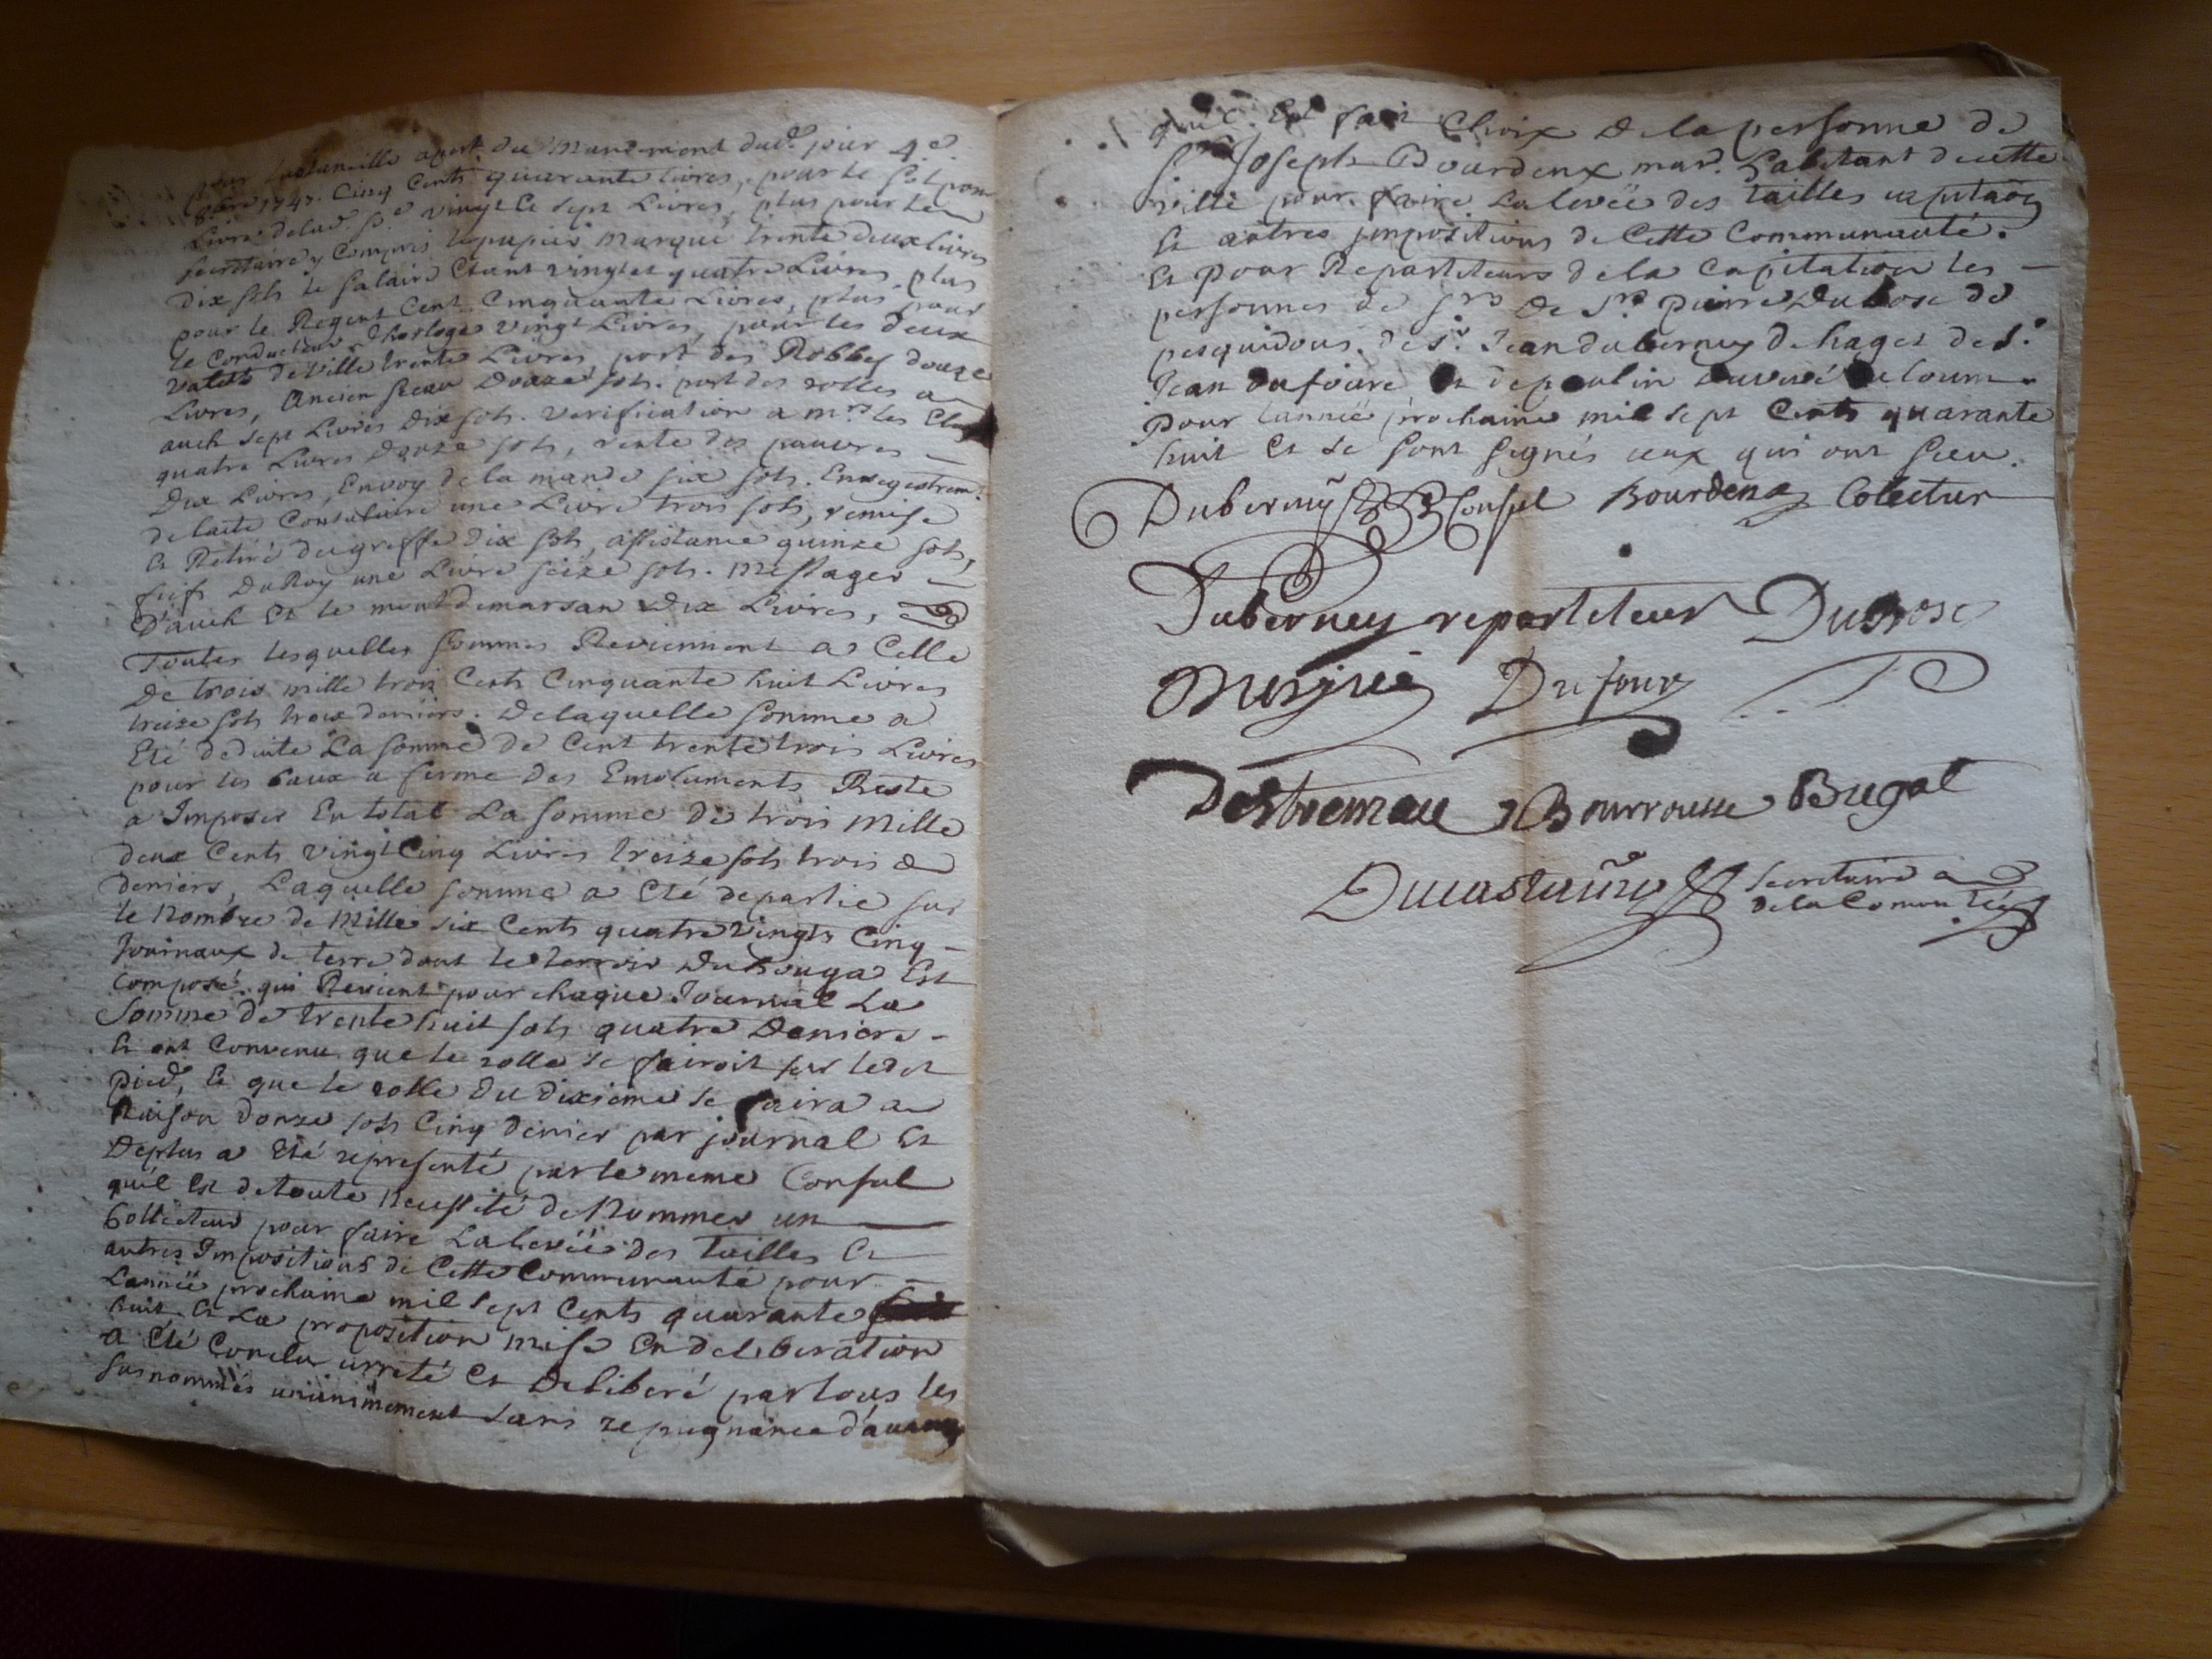 pour lustancille apert du mandement dud. jour 4e.
8bre 1747. Cinq Cents quarante livres, pour le sol pour
Livre de lad. Se. vingt et sept Livres, plus pour le
secretaire y Compris le papier marqué trente deux livres
Dix sols le salaire Etant vingt et quatre Livres, plus
pour le Regent Cent Cinquante Livres, plus pour
le Conducteur d'horloge vingt Livres, pour les deux
valets de ville trente Livres, port des Robbes douze
Livres, Ancien sceau Douze sols. port des rolles a
auch sept Livres dix sols. verification a mrs. les Elus
quatre Livres Douze sols, rente des pauvres
Dix Livres, Envoy de la mande six sols. Enregistrem.
de lacte Consulaire une Livre trois sols, remise
et Retiré du greffe dix sols, assistance quinze sols,
fiefs Du Roy une Livre seize sols. Messager
D'auch Et le mont demarsan Dix Livres,
Toutes lesquelles sommes Reviennent a Celle
De trois mille trois Cents Cinquante huit Livres
treize sols trois deniers. De laquelle somme a
Eté deduite La somme de Cent trente trois Livres
pour les baux a ferme des Emoluments Reste
a Imposer En total La somme de trois mille
deux Cents vingt Cinq Livres treize sols trois
deniers, Laquelle somme a Eté departie sur
le nombre de Mille six Cents quatre vingts Cinq
Journaux de terre dont le terroir Du houga Est
Composé. qui Revient pour chaque Journal La
Somme de trente huit sols quatre Deniers
Et ont Convenu que le rolle se fairoit sur ledt
pied, Et que le rolle Du dixieme se faira a
Raison donze sols Cinq denier par journal Et
Deplus a Eté representé par le meme Consul
quil Est de toute necessité de Nommer un
Collecteur pour faire La levée des tailles Et
autres Impositions de Cette Communauté pour
Lannée prochaine mil sept Cents quarante
huit. Et La proposition mise En deliberation
a Eté Conclu arreté Et Deliberé par tous les
susnommés unanimement sans repugnance d'aucun
quil. Est fait Choix de la personne de
Sr. Joseph Bourdenx mar. habitant de cette
ville pour faire La levée des tailles captaon
Et autres impositions de Cette Communauté.
Et pour Repartiteurs de la Capitation les
personnes de Srs De Sr. pierre Dubosc de
pesquidous. de Sr. Jean duberney de hages de S.
Jean dufourc Et de paulin
Pour Lannée prochaine mil sept Cents quarante
huit Et se sont signés ceux qui ont sceu.
Duberney Consul Bourdenx Colecteur
Duberney repartiteur Dubosc
Dufourc
Destremau Bourrousse Bugat
Ducastaing secretaire
de la Comonté